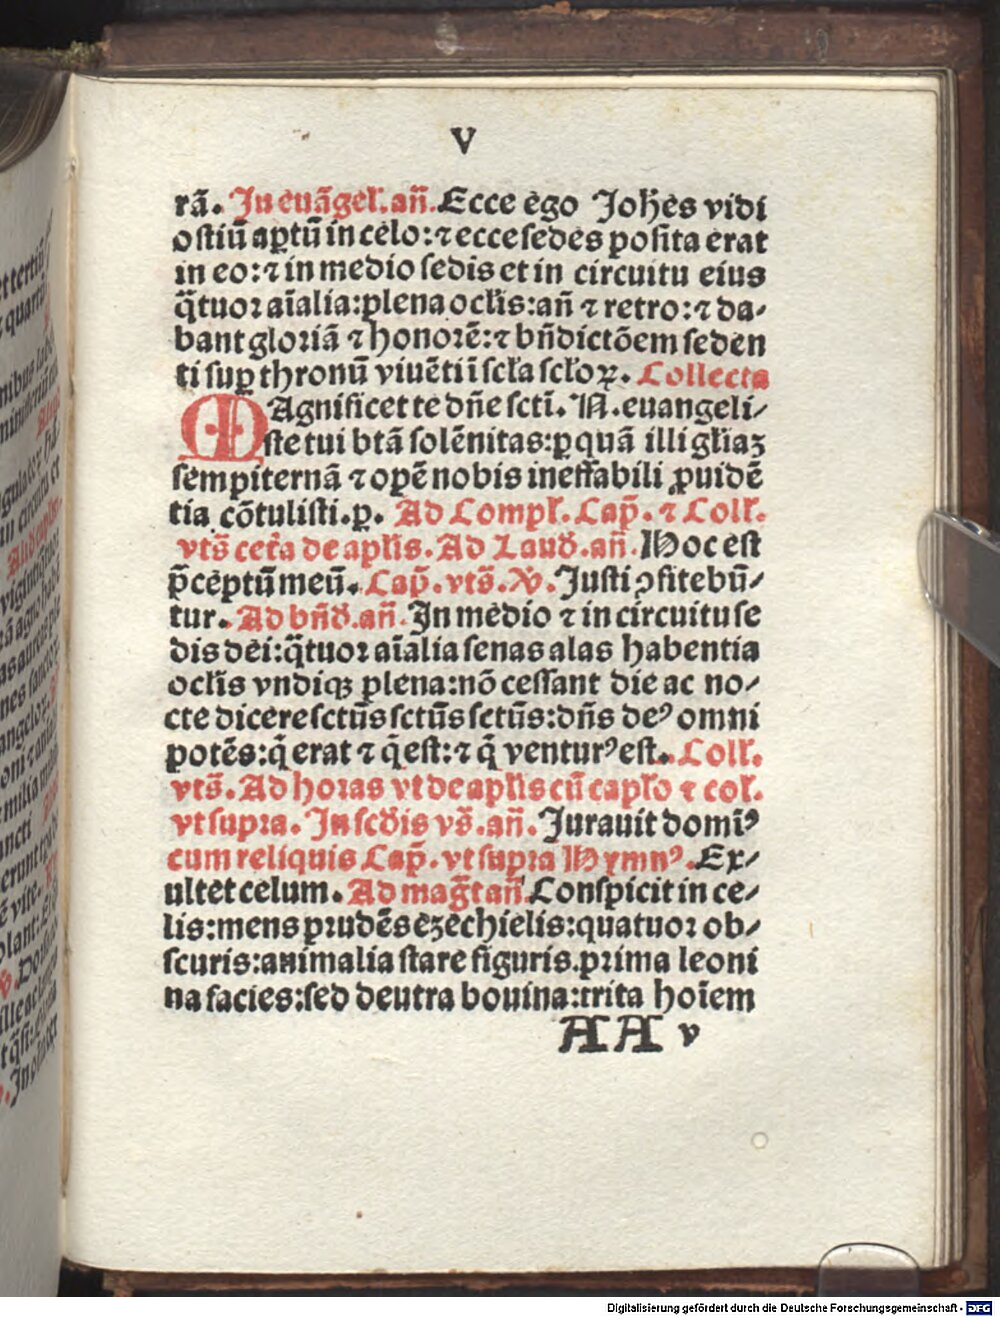 V
rã. In euãgel̃. añ. Ecce ego Joh̃es vidi
ostiũ aptũ in celo: ⁊ ecce sedes posita erat
in eo: ⁊ in medio sedis et in circuitu eius
q̃tuor aĩalia: plena ocl̃is: añ ⁊ retro: ⁊ da-
bant gloriã ⁊ honorẽ: ⁊ bñdictõem seden
ti sup̱ thronũ viuẽti ĩ scl̃a scl̃oꝝ. Collecta
MAgnificet te dñe sctĩ. N. euangeli-
ste tui btã solẽnitas: ꝑ quã illi gl̃iaꝫ
sempiternã ⁊ opẽ nobis ineffabili ꝓuidẽ
tia cõtulisti. ꝑ. Ad Compl̃. Cap̃. ⁊ Coll̃.
vts̃ cet̃a de apl̃is. Ad Laud̃. añ. Hoc est
p̃ceptũ meũ. Cap̃. vts̃. V̓. Justi ꝯfitebũ-
tur. Ad bñd̃. añ. In medio ⁊ in circuitu se
dis dei: q̃tuor aĩalia senas alas habentia
ocl̃is vndiqꝫ plena: nõ cessant die ac no-
cte dicere sctũs sctũs sctũs: dñs deꝰ omni
potẽs: q̃ erat ⁊ q̃ est: ⁊ q̃ venturꝰ est. Coll̃.
vts̃. Ad horas vt de apl̃is cũ capl̃o ⁊ col̃.
vt supra. In scd̃is vs̃. añ. Jurauit domĩꝰ
cum reliquis Cap̃. vt supra Hymnꝰ. Ex-
ultet celum. Ad mag̃t añ Conspicit in ce-
lis: mens prudẽs ezechielis: quatuor ob-
scuris: animalia stare figuris. prima leoni
na facies: sed deutra bouina: trita hoĩem
AA v
Digitalisierung gefördert durch die Deutsche Forschungsgemeinschaft - DFG